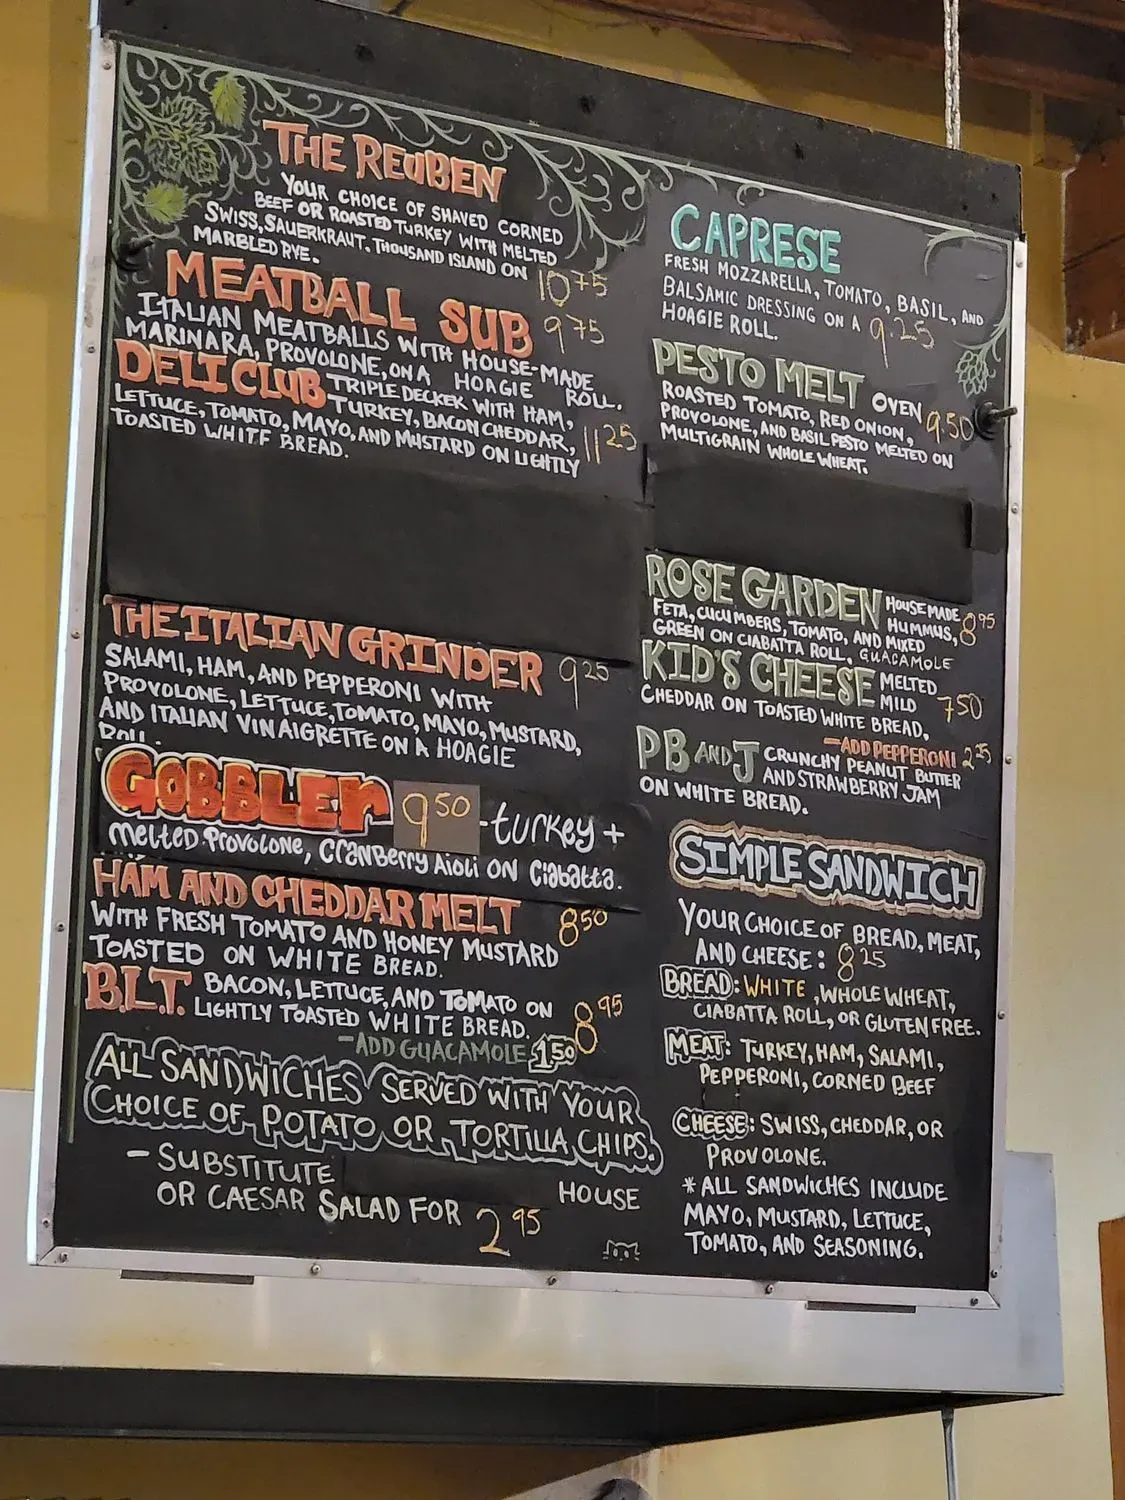 THE REUBEN
YOUR CHOICE OF SHAVED CORNED
BEEF OR ROASTED TURKEY WITH MELTED
SWISS, SAUERKRAUT, THOUSAND ISLAND ON
MARBLED RYE. 10 75
MEATBALL SUB 9 75
ITALIAN MEATBALLS WITH HOUSE-MADE
MARINARA, PROVOLONE, ON A HOAGIE ROLL.
DELI CLUB TRIPLE DECKER WITH HAM,
TURKEY, BACON CHEDDAR,
LETTUCE, TOMATO, MAYO, AND MUSTARD ON LIGHTLY 11 25
TOASTED WHITE BREAD.
THE ITALIAN GRINDER 9 25
SALAMI, HAM, AND PEPPERONI WITH
PROVOLONE, LETTUCE, TOMATO, MAYO, MUSTARD,
AND ITALIAN VINAIGRETTE ON A HOAGIE
ROLL.
GOBBLER 9 50 -turkey +
melted Provolone, CRANBerry Aioli ON Ciabatta.
HAM AND CHEDDAR MELT 8 50
WITH FRESH TOMATO AND HONEY MUSTARD
TOASTED ON WHITE BREAD.
B.L.T. BACON, LETTUCE, AND TOMATO ON
LIGHTLY TOASTED WHITE BREAD. 8 95
-ADD GUACAMOLE 1 50
ALL SANDWICHES SERVED WITH YOUR
CHOICE OF POTATO OR TORTILLA CHIPS.
- SUBSTITUTE HOUSE
OR CAESAR SALAD FOR 2 95
CAPRESE
FRESH MOZZARELLA, TOMATO, BASIL, AND
BALSAMIC DRESSING ON A
HOAGIE ROLL. 9.25
PESTO MELT OVEN 9 50
ROASTED TOMATO, RED ONION,
PROVOLONE, AND BASIL PESTO MELTED ON
MULTIGRAIN WHOLE WHEAT.
ROSE GARDEN HOUSE MADE
HUMMUS, 8 95
FETA, CUCUMBERS, TOMATO, AND MIXED
GREEN ON CIABATTA ROLL, GUACAMOLE
KID'S CHEESE MELTED
MILD 7 50
CHEDDAR ON TOASTED WHITE BREAD.
-ADD PEPPERONI
PB AND J CRUNCHY PEANUT BUTTER
AND STRAWBERRY JAM
ON WHITE BREAD.
SIMPLE SANDWICH
YOUR CHOICE OF BREAD, MEAT,
AND CHEESE: 8 25
BREAD: WHITE, WHOLE WHEAT,
CIABATTA ROLL, OR GLUTEN FREE.
MEAT: TURKEY, HAM, SALAMI,
PEPPERONI, CORNED BEEF
CHEESE: SWISS, CHEDDAR, OR
PROVOLONE.
* ALL SANDWICHES INCLUDE
MAYO, MUSTARD, LETTUCE,
TOMATO, AND SEASONING.